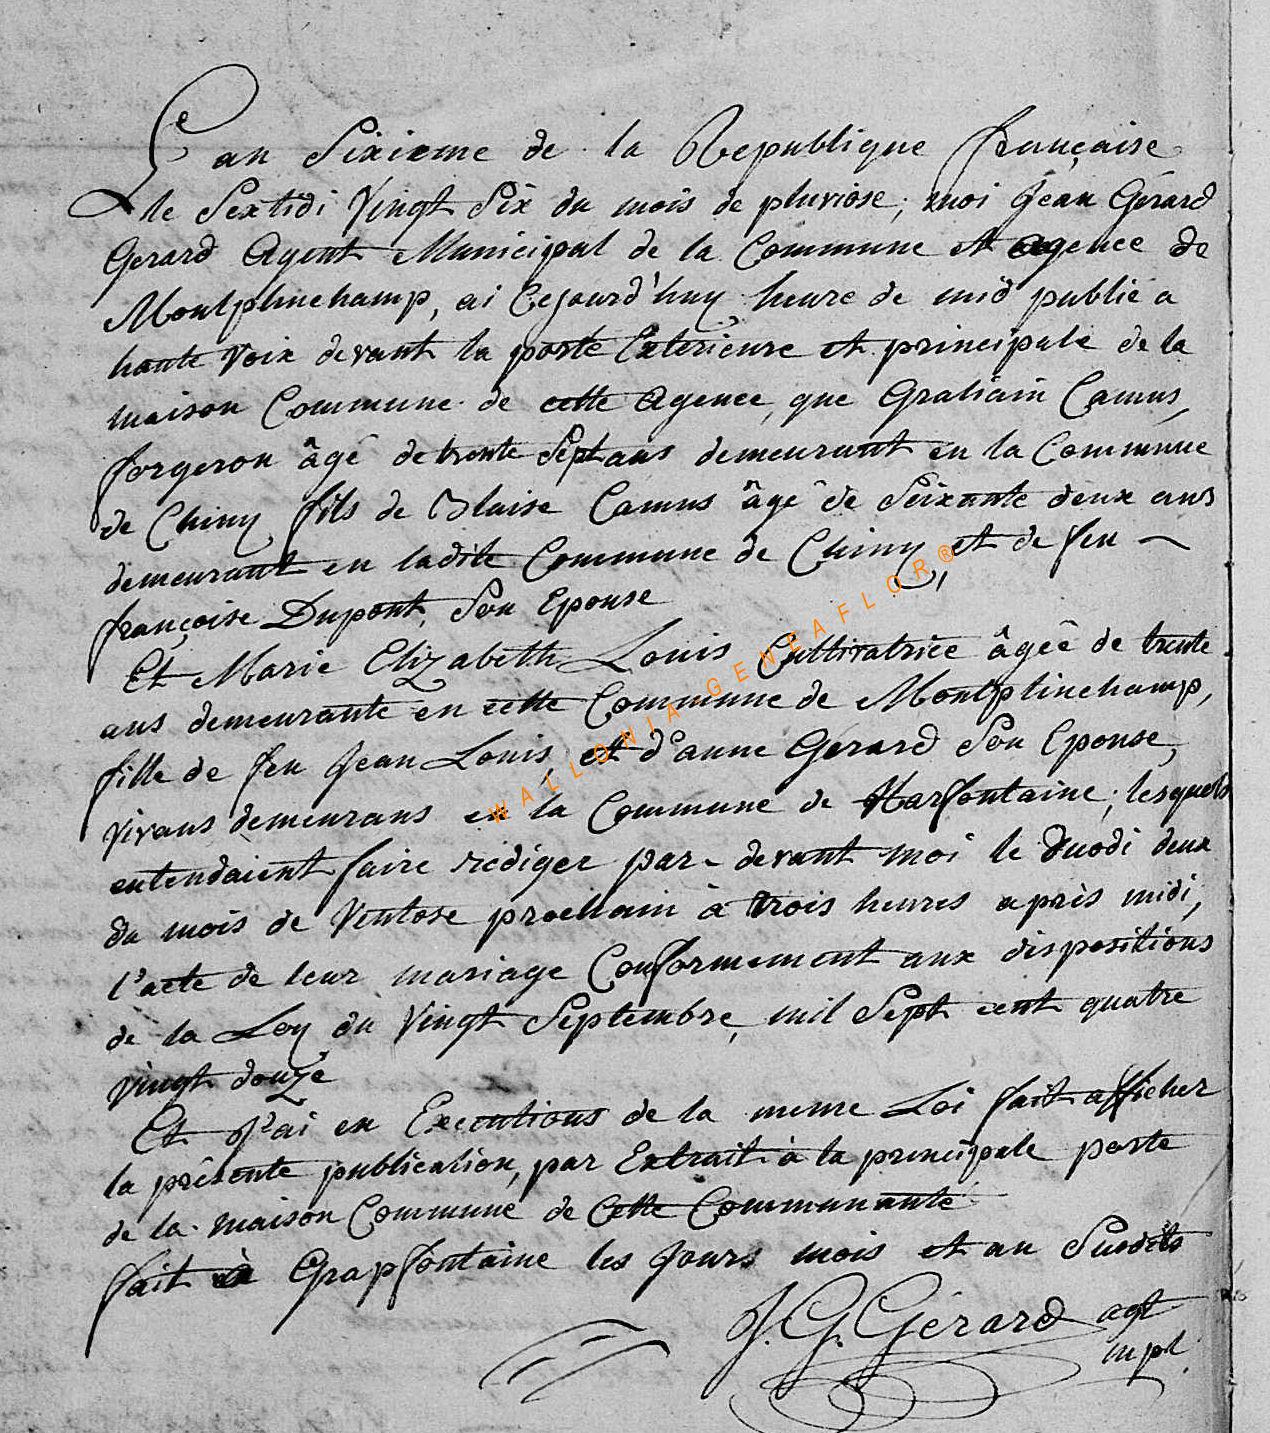 L'an Sixieme de la Republique française
le Sextidi Vingt Six du mois de pluviose; moi Jean Gérard
Gerard Agent Municipal de la Commune et agence de
Montplinchamp, ai Cejourd'huy heure de mid publié a
haute voix devant la porte Exterieure et principale de la
maison Commune de cette Agence, que Gratiain Camus,
forgeron âgé de trente Sept ans demeurant en la Commune
de Chiny fils de Blaise Camus âgé de Soixante deux ans
demeurant en ladite Commune de Chiny, et de feu
françoise Dupont, Son Epouse
Et Marie Elizabeth Louis Cultivatrice âgée de trente
ans demeurante en cette Commune de Montplinchamp,
fille de feu Jean Louis, et d'anne Gerard Son Epouse,
vivans demeurans en la Commune de Harfontaine; lesquels
entendaient faire rédiger par-devant moi le Duodi deux
du mois de Ventose prochain à trois heures après midi,
l'acte de leur mariage Conformement aux dispositions
de la Loy du Vingt Septembre, mil Sept cent quatre
vingt douze
Et J'ai en Executions de la meme Loi fait afficher
la présente publication, par Extrait à la principale porte
de la maison Commune de Cette Communauté
fait à Grapfontaine les Jours mois et an Susdits
J. G. Gérard agt
mpl.
WALLONIA GENEAFLOR®